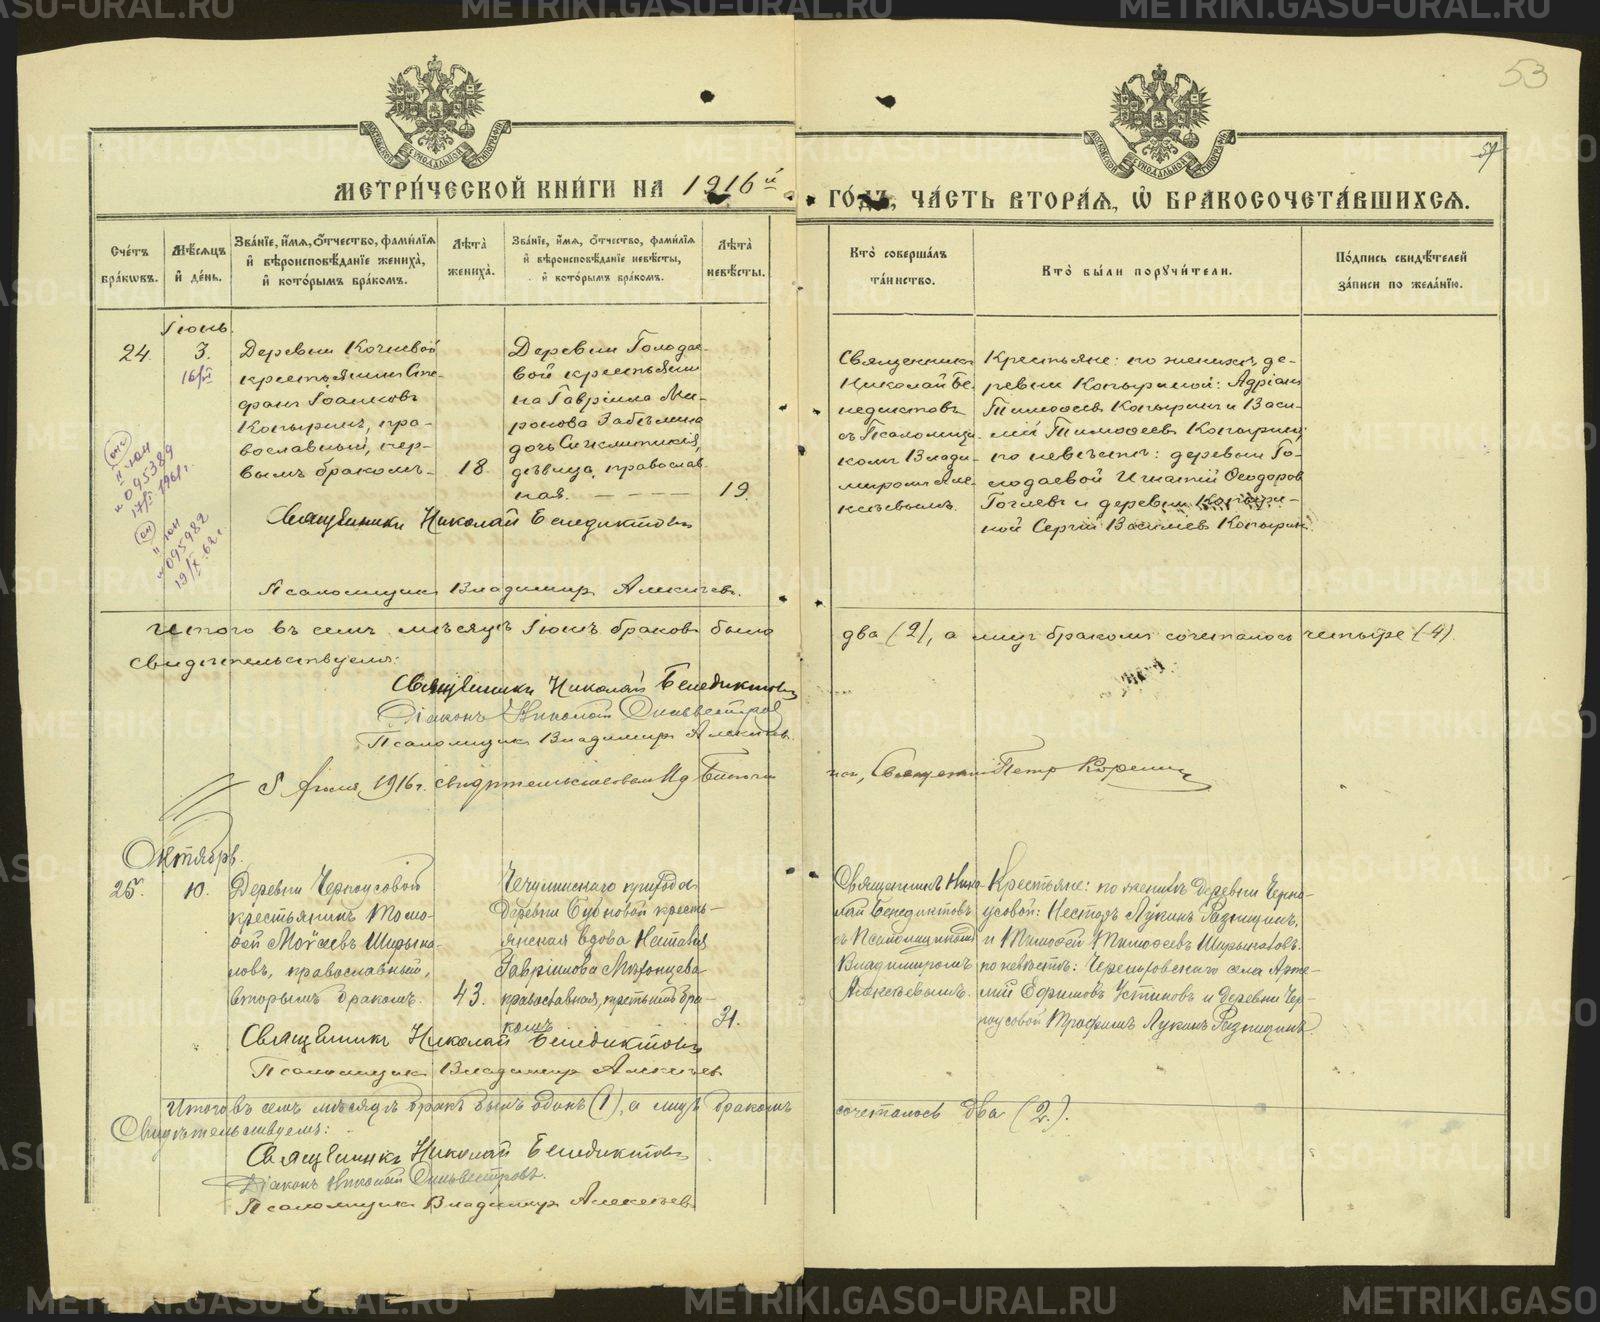 METRIKI.GASO-URAL.RU
53
57
МОСКОВСКОЙ СѴНОДАЛЬНОЙ ТИПОГРАФІИ
МОСКОВСКОЙ СѴНОДАЛЬНОЙ ТИПОГРАФІИ
МЕТРИ́ЧЕСКОЙ КНИ́ГИ НА 1916й ГО́ДЪ, ЧА́СТЬ ВТОРА́Я, Ѡ҆ БРАКОСОЧЕТА́ВШИХСЯ.
Сче́тъ бра́кѡвъ.
Мѣ́сяцъ и҆ де́нь.
Зва́нїе, и҆́мя, ѻ҆́тчество, фами́лїя и҆ вѣроисповѣ́данїе жениха̀, и҆ кото́рымъ бра́комъ.
Лѣта̀ жениха̀.
Зва́нїе, и҆́мя, ѻ҆́тчество, фами́лїя и҆ вѣроисповѣ́данїе невѣ́сты, и҆ кото́рымъ бра́комъ.
Лѣта̀ невѣ́сты.
Кто̀ соверша́лъ та́инство.
Кто̀ бы́ли порꙋчи́тели.
По́дпись свидѣ́телей за́писи по жела́нїю.
Іюнь.
24.
3.
16/VI
Деревни Кочневой
крестьянинъ Сте-
фанъ Іоанновъ
Копыринъ, пра-
вославный, пер-
вымъ бракомъ.
18.
Деревни Голодае-
вой крестьяни
на Гавріила Ми-
ронова Забѣлина
дочь Сигклитикія,
дѣвица, православ
ная.
19.
Священникъ
Николай Бе-
недиктовъ
съ Псаломщи-
комъ Влади-
миромъ Але-
ксѣевымъ.
Крестьяне: по женихѣ де-
ревни Копыриной: Адріанъ
Тимофеевъ Копыринъ и Васи-
лій Тимофеевъ Копыринъ;
по невѣстѣ: деревни Го-
лодаевой Игнатій Ѳеодоровъ
и деревни Копыри-
ной Сергій Василіевъ Копыринъ.
Священникъ Николай Бенедиктовъ
Псаломщикъ Владимиръ Алексѣевъ.
II юАИ
№095389
1961г.
II юАИ
№095982
19/X.62г.
Итого въ семъ мѣсяцѣ Іюнѣ браковъ было два (2), а лицъ бракомъ сочеталось четыре (4)
Свидѣтельствуемъ:
Священникъ Николай Бенедиктовъ
Діаконъ Николай Сильвестровъ
Псаломщикъ Владимиръ Алексѣевъ.
1916г. свидѣтельствовалъ Священникъ Петръ
Октябрь.
25.
10.
Деревни Черноусовой
крестьянинъ Тимо-
фей Моѵсеевъ Ширыка-
ловъ, православный,
вторымъ бракомъ.
43.
прихода
деревни Бубновой кресть-
янская вдова Наталія
Гавріилова
православная, третьимъ бра-
комъ
31.
Священникъ Нико-
лай Бенедиктовъ
съ Псаломщикомъ
Владимиромъ
Алексѣевымъ.
Крестьяне: по женихѣ деревни Черно-
усовой: Несторъ Лукинъ Разницинъ,
и Тимофей Тимофеевъ
по невѣстѣ: села Арте-
мій Ефимовъ Устиновъ и деревни Чер-
ноусовой Трофимъ Лукинъ Разницинъ.
Священникъ Николай Бенедиктовъ
Псаломщикъ Владимиръ Алексѣевъ
Итого въ семъ мѣсяцѣ бракъ былъ одинъ (1), а лицъ бракомъ сочеталось два (2).
Свидѣтельствуемъ:
Священникъ Николай Бенедиктовъ
Діаконъ Николай Сильвестровъ.
Псаломщикъ Владимиръ Алексѣевъ